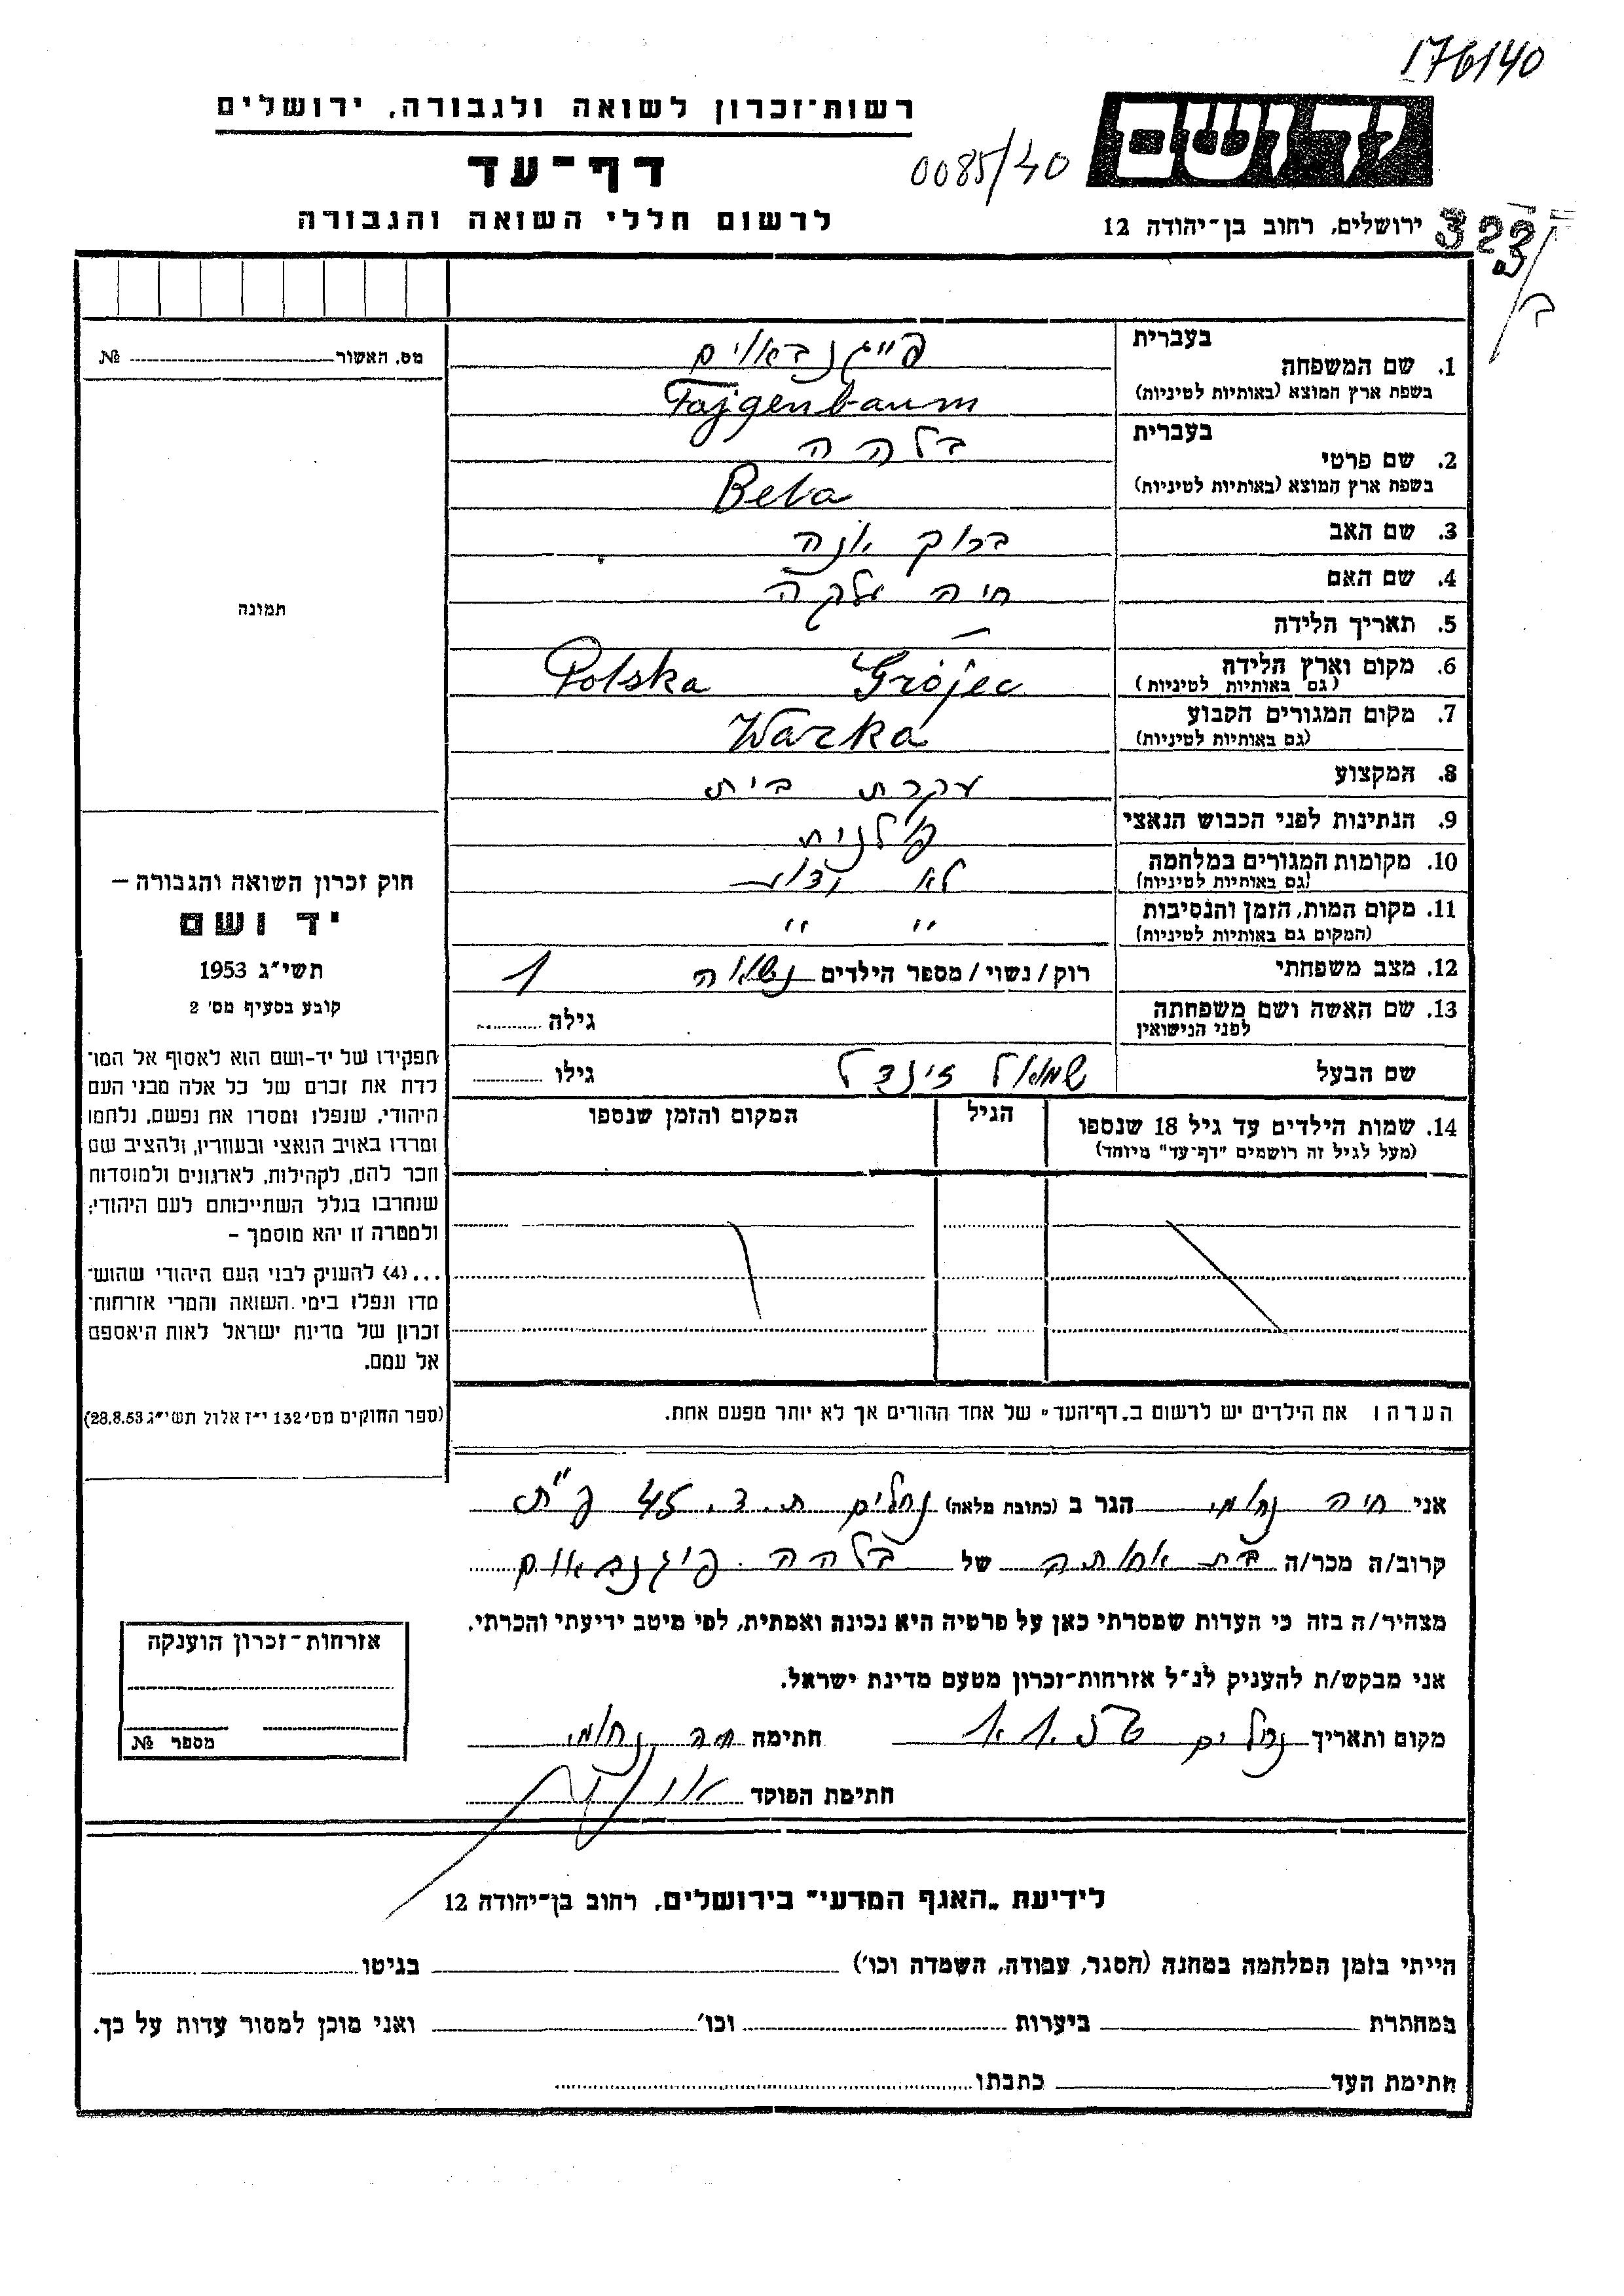 176140
רשות־זכרון לשואה ולגבורה, ירושלים
יד ושם
דף־עד
0085/40
לרשום חללי השואה והגבורה
ירושלים, רחוב בן־יהודה 12
323
ב
מס. האשור № 
1. שם המשפחה בעברית פייגנבאוים
בשפת ארץ המוצא (באותיות לטיניות) Fajgenbaum
2. שם פרטי בעברית בלהה
בשפת ארץ המוצא (באותיות לטיניות) Bela
3. שם האב ברוך יונה
4. שם האם חיה
5. תאריך הלידה —
6. מקום וארץ הלידה (גם באותיות לטיניות) Grójec Polska
7. מקום המגורים הקבוע (גם באותיות לטיניות) Warka
8. המקצוע עקרת בית
9. הנתינות לפני הכבוש הנאצי פולנית
10. מקומות המגורים במלחמה (גם באותיות לטיניות) לא ידוע
11. מקום המות, הזמן והנסיבות (המקום גם באותיות לטיניות) " "
12. מצב משפחתי רוק/נשוי/מספר הילדים נשואה 1
13. שם האשה ושם משפחתה לפני הנישואין גילה
שם הבעל שמואל זינדל גילו
14. שמות הילדים עד גיל 18 שנספו הגיל המקום והזמן שנספו
(מעל לגיל זה רושמים "דף־עד" מיוחד)
הערה: את הילדים יש לרשום ב„דף־העד" של אחד ההורים אך לא יותר מפעם אחת.
תמונה
חוק זכרון השואה והגבורה —
יד ושם
תשי"ג 1953
קובע בסעיף מס' 2
תפקידו של יד-ושם הוא לאסוף אל המו־
לדת את זכרם של כל אלה מבני העם
היהודי, שנפלו ומסרו את נפשם, נלחמו
ומרדו באויב הנאצי ובעוזריו, ולהציב שם
וזכר להם, לקהילות, לארגונים ולמוסדות
שנחרבו בגלל השתייכותם לעם היהודי;
ולמטרה זו יהא מוסמך –
...(4) להעניק לבני העם היהודי שהוש־
מדו ונפלו בימי השואה והמרי אזרחות־
זכרון של מדינת ישראל לאות היאספם
אל עמם.
(ספר החוקים מס' 132 י"ז אלול תשי"ג 28.8.53)
אני חיה נחומי הגר ב (כתובת מלאה) נחלים ת.ד. 45 פ"ת
קרוב/ה מכר/ה בת אחותה של בלהה פיגנבאום
מצהיר/ה בזה כי העדות שמסרתי כאן על פרטיה היא נכונה ואמתית, לפי מיטב ידיעתי והכרתי.
אני מבקש/ת להעניק לנ"ל אזרחות־זכרון מטעם מדינת ישראל.
מקום ותאריך נחלים חתימה חיה נחומי
חתימת הפוקד
אזרחות־זכרון הוענקה
מספר №
לידיעת „האגף המדעי" בירושלים, רחוב בן־יהודה 12
הייתי בזמן המלחמה במחנה (הסגר, עבודה, השמדה וכו') בגיטו
במחתרת ביערות וכו' ואני מוכן למסור עדות על כך.
חתימת העד כתבתו